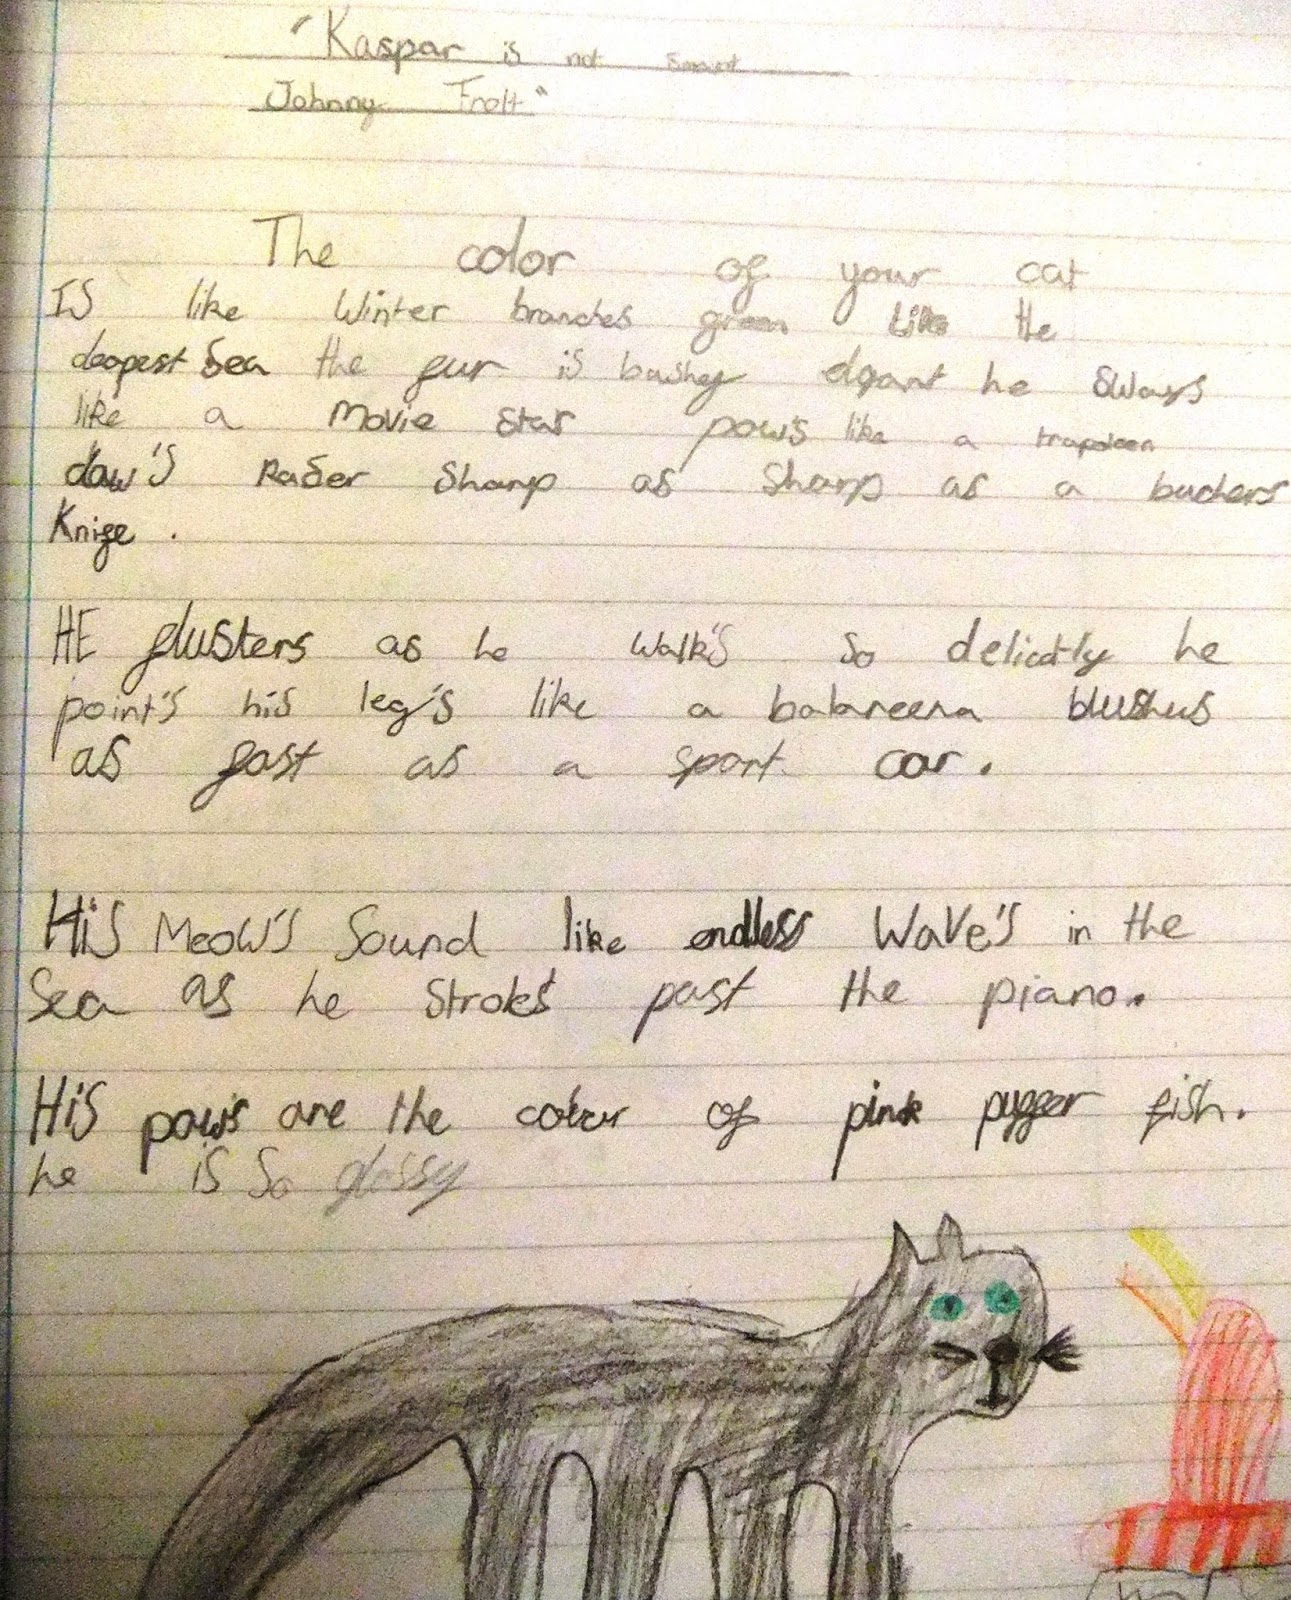 "Kaspar is not servant
Johnny Trott"
The color of your cat
IS like Winter branches green like the
deepest sea the fur is bushey elgant he sways
like a Movie star paws like a trapoleen
claw's Raser sharp as sharp as a buchers
Knife.
HE glusters as he walk's so delicatly he
point's his leg's like a balareena blushus
as fast as a sport car.
His Meow's Sound like endless Wave's in the
Sea as he stroks past the piano.
His paw's are the colour of pink puffer fish.
he is so glossy